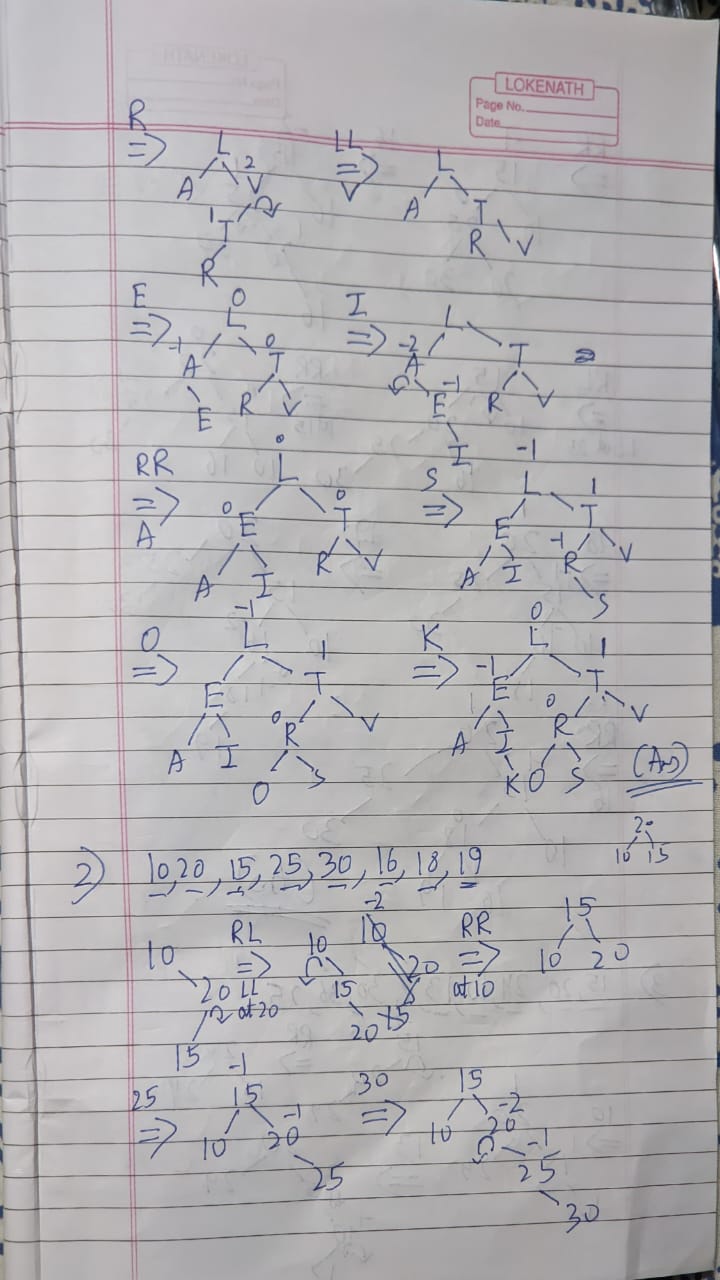 LOKENATH
Page No.
Date
R
⇒
L
A
2
V
1
T
R
LL
⇒
V
L
A
T
R
V
E
⇒
0
L
-1
A
0
T
E
R
V
I
⇒
L
-2
A
T
-1
E
R
V
I
RR
⇒
A
0
L
0
E
0
T
A
I
R
V
S
⇒
-1
L
E
1
T
A
I
-1
R
V
S
O
⇒
-1
L
E
1
T
A
I
0
R
V
O
S
K
⇒
0
L
-1
E
1
T
A
I
0
R
V
K
O
S
(Ans)
20
10 15
2) 10, 20, 15, 25, 30, 16, 18, 19
10
20
15
RL
⇒
LL
at 20
10
15
20
-2
10
20
15
RR
⇒
at 10
15
10 20
25
⇒
-1
15
10
-1
20
25
30
⇒
15
10
-2
20
-1
25
30